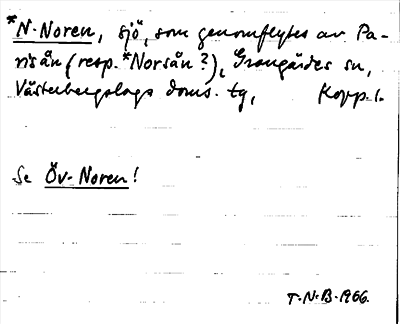 *N. Noren, sjö, som genomflytes av Pa-
risån (resp. *Norsån?), Grangärdes sn,
Västerbergslags doms. tg, Kopp. l.
Se Öv. Noren!
T.N.B. 1966.